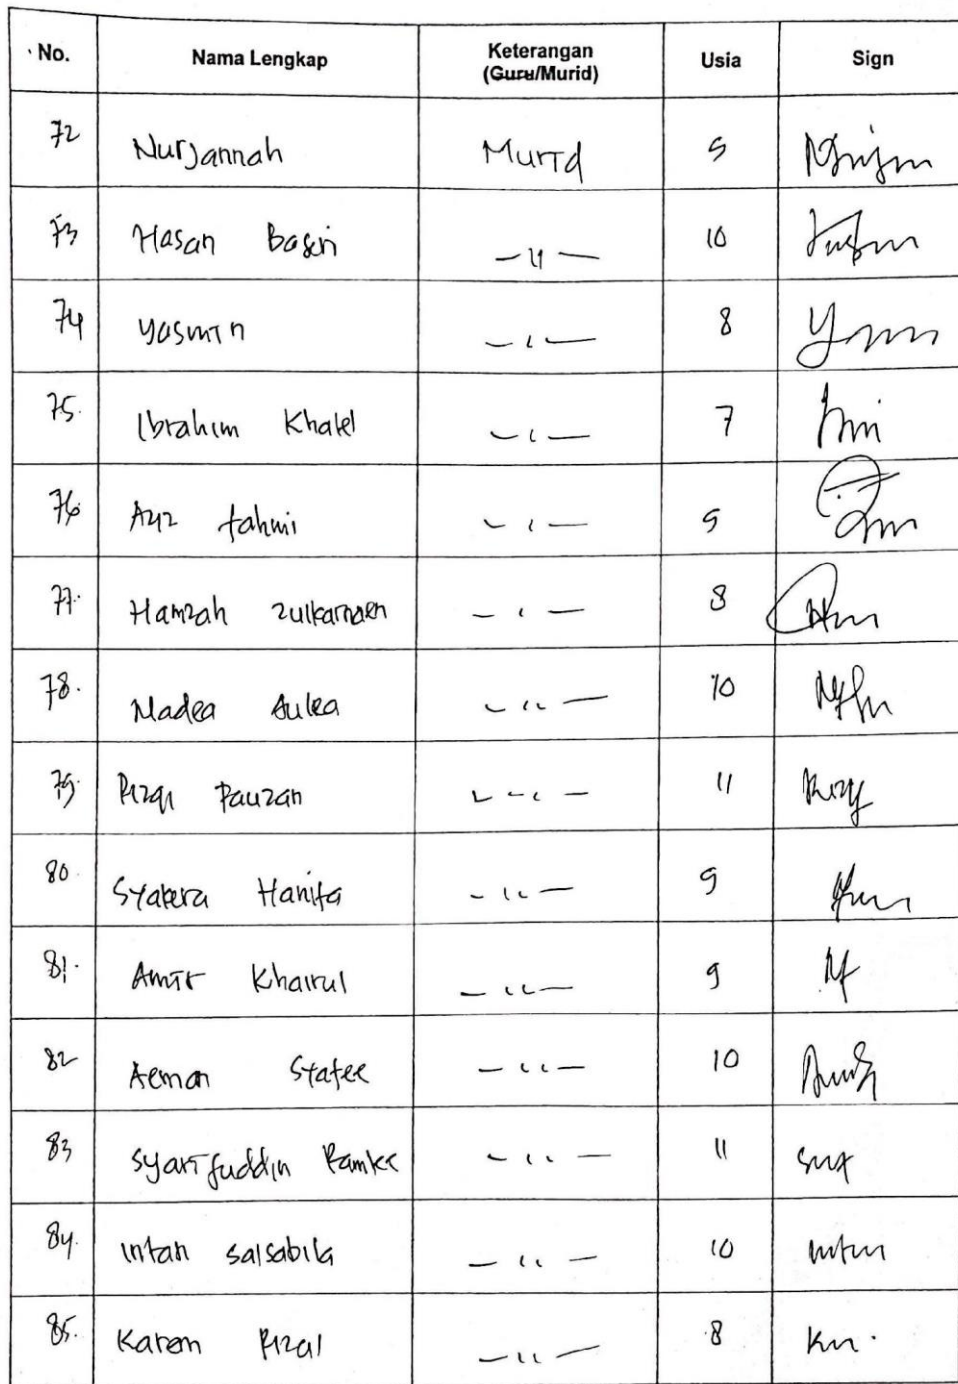 No. Nama Lengkap Keterangan (Guru/Murid) Usia Sign
72 Nurjannah Murid 9
73 Hasan Basri — 11 — 10
74 Yasmin — ı — 8
75. Ibrahim Khalel — ı — 7
76 Aziz fahmi — ı — 9
77. Hamzah Zulkarnaen — ı — 8
78. Nadea Aulea — ıı — 10
79. Rizqi Pauzan — ıı — 11
80. Syakera Hanifa — ıı — 9
81. Amir Khairul — ıı — 9
82 Aeman Syafee — ıı — 10
83 Syarifuddin Ramlee — ıı — 11
84. intan salsabila — ıı — 10
85. Karem Rizal — ıı — 8